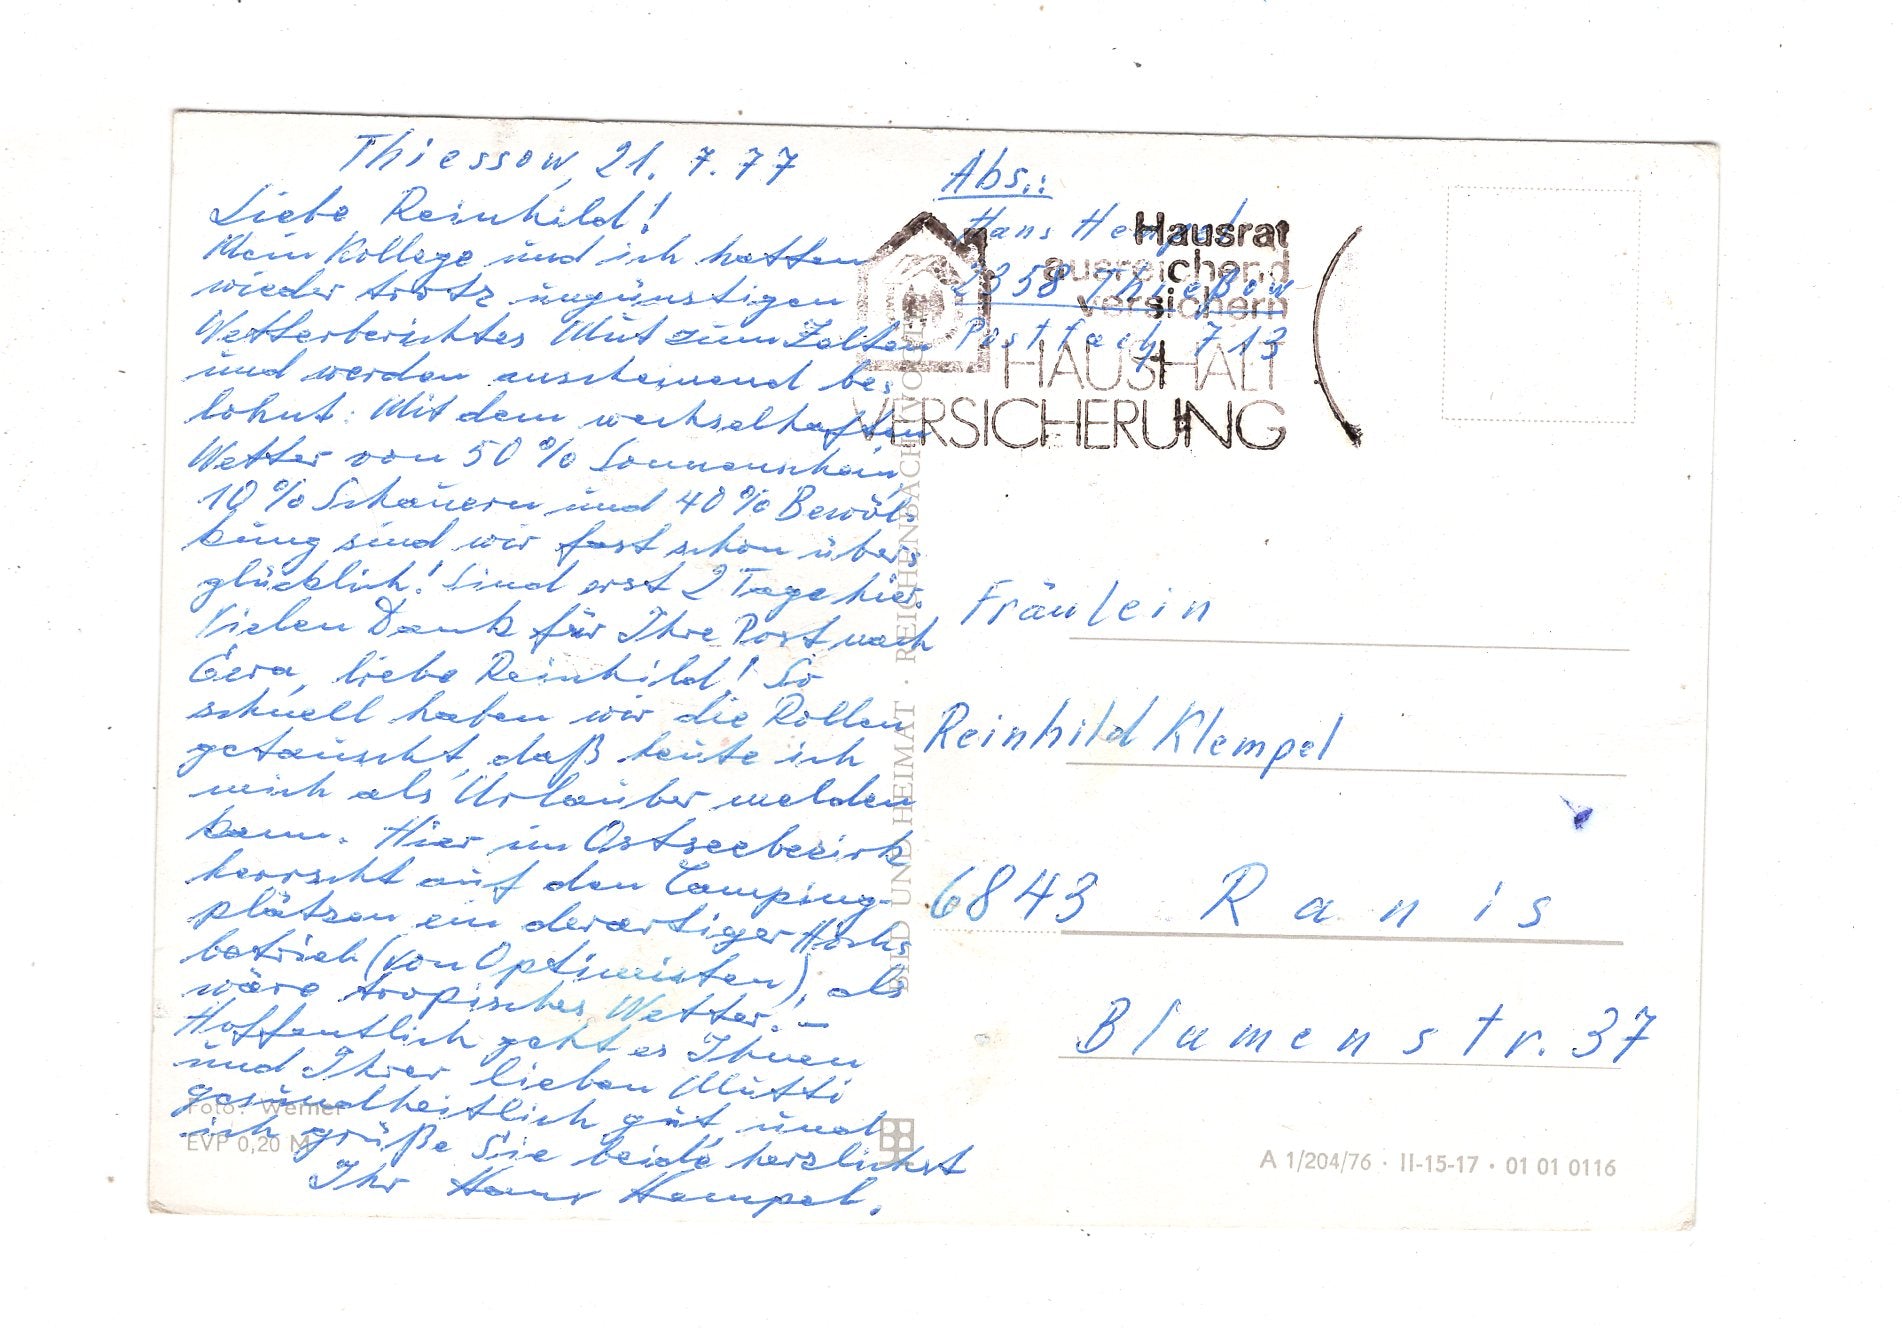 Thiessow, 21. 7. 77
Liebe Reinhild!
Mein Kollege und ich hatten
wieder trotz ungünstigen
Wetterberichtes Mut zum Zelten
und werden anscheinend be-
lohnt: Mit dem wechselhaften
Wetter von 50 % Sonnenschein,
10 % Schauern und 40 % Bewöl-
kung sind wir fast schon über-
glücklich! Sind erst 2 Tage hier.
Vielen Dank für Ihre Post nach
Gera, liebe Reinhild! So
schnell haben wir die Rollen
getauscht, daß heute ich
mich als Urlauber melden
kann. Hier im Ostseebezirk
herrscht auf den Camping-
plätzen ein derartiger Hoch-
betrieb (von Optimisten), als
wäre tropisches Wetter. –
Hoffentlich geht es Ihnen
und Ihrer lieben Mutti
gesundheitlich gut und
ich grüße Sie beide herzlichst
Ihr Hans Hempel.
Foto: Werner
EVP 0,20 M
BILD UND HEIMAT · REICHENBACH (VOGTL)
Abs.:
Hans Hempel
2358 Thießow
Postfach 713
Hausrat
ausreichend
versichern
HAUSHALT
VERSICHERUNG
Fräulein
Reinhild Klempel
6843 Ranis
Blumenstr. 37
A 1/204/76 · II-15-17 · 01 01 0116